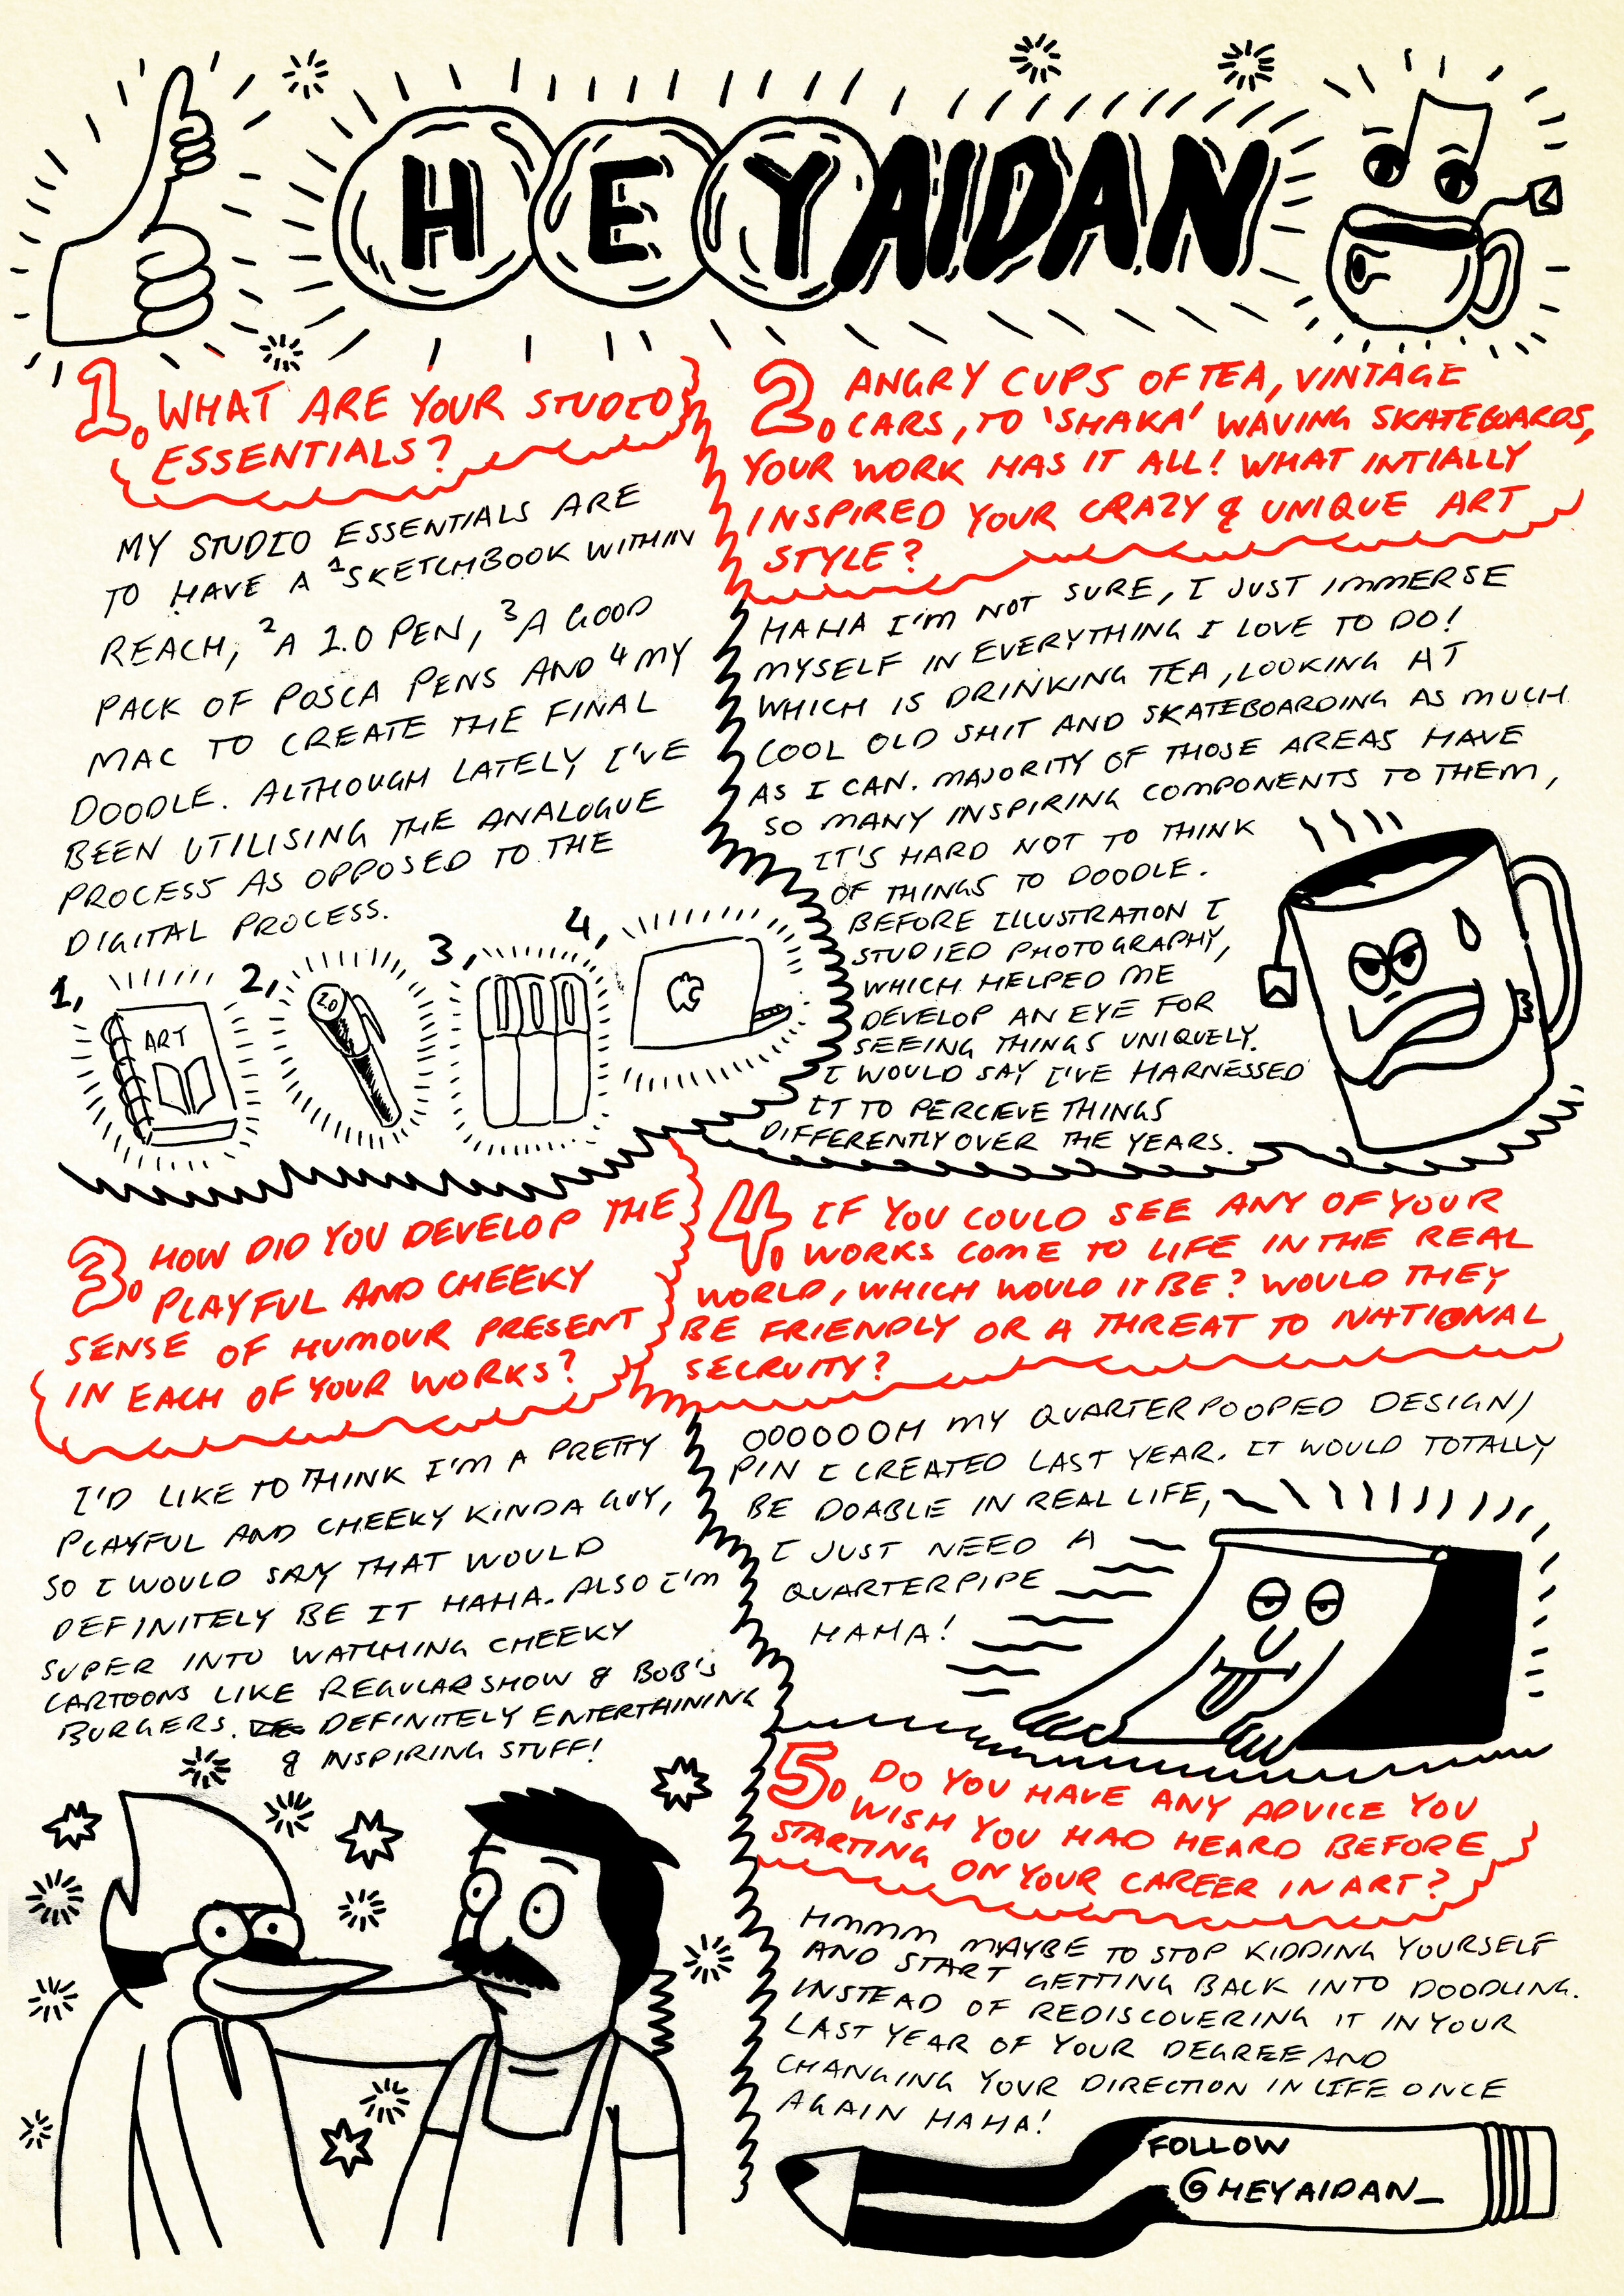 HEYAIDAN
1. WHAT ARE YOUR STUDIO
ESSENTIALS?
MY STUDIO ESSENTIALS ARE
TO HAVE A ¹SKETCHBOOK WITHIN
REACH, ²A 1.0 PEN, ³A GOOD
PACK OF POSCA PENS AND 4 MY
MAC TO CREATE THE FINAL
DOODLE. ALTHOUGH LATELY, I'VE
BEEN UTILISING THE ANALOGUE
PROCESS AS OPPOSED TO THE
DIGITAL PROCESS.
1,
ART
2,
2.0
3,
4,
2. ANGRY CUPS OF TEA, VINTAGE
CARS, TO 'SHAKA' WAVING SKATEBOARDS,
YOUR WORK HAS IT ALL! WHAT INTIALLY
INSPIRED YOUR CRAZY & UNIQUE ART
STYLE?
HAHA I'M NOT SURE, I JUST IMMERSE
MYSELF IN EVERYTHING I LOVE TO DO!
WHICH IS DRINKING TEA, LOOKING AT
COOL OLD SHIT AND SKATEBOARDING AS MUCH
AS I CAN. MAJORITY OF THOSE AREAS HAVE
SO MANY INSPIRING COMPONENTS TO THEM,
IT'S HARD NOT TO THINK
OF THINGS TO DOODLE.
BEFORE ILLUSTRATION I
STUDIED PHOTOGRAPHY,
WHICH HELPED ME
DEVELOP AN EYE FOR
SEEING THINGS UNIQUELY.
I WOULD SAY I'VE HARNESSED
IT TO PERCIEVE THINGS
DIFFERENTLY OVER THE YEARS.
3. HOW DID YOU DEVELOP THE
PLAYFUL AND CHEEKY
SENSE OF HUMOUR PRESENT
IN EACH OF YOUR WORKS?
I'D LIKE TO THINK I'M A PRETTY
PLAYFUL AND CHEEKY KINDA GUY,
SO I WOULD SAY THAT WOULD
DEFINITELY BE IT HAHA. ALSO I'M
SUPER INTO WATCHING CHEEKY
CARTOONS LIKE REGULAR SHOW & BOB'S
BURGERS. DEFINITELY ENTERTAINING
& INSPIRING STUFF!
4. IF YOU COULD SEE ANY OF YOUR
WORKS COME TO LIFE IN THE REAL
WORLD, WHICH WOULD IT BE? WOULD THEY
BE FRIENDLY OR A THREAT TO NATIONAL
SECRUITY?
OOOOOOH MY QUARTER POOPED DESIGN/
PIN I CREATED LAST YEAR. IT WOULD TOTALLY
BE DOABLE IN REAL LIFE,
I JUST NEED A
QUARTERPIPE
HAHA!
5. DO YOU HAVE ANY ADVICE YOU
WISH YOU HAD HEARD BEFORE
STARTING ON YOUR CAREER IN ART?
HMMM MAYBE TO STOP KIDDING YOURSELF
AND START GETTING BACK INTO DOODLING.
INSTEAD OF REDISCOVERING IT IN YOUR
LAST YEAR OF YOUR DEGREE AND
CHANGING YOUR DIRECTION IN LIFE ONCE
AGAIN HAHA!
FOLLOW
@HEYAIDAN_